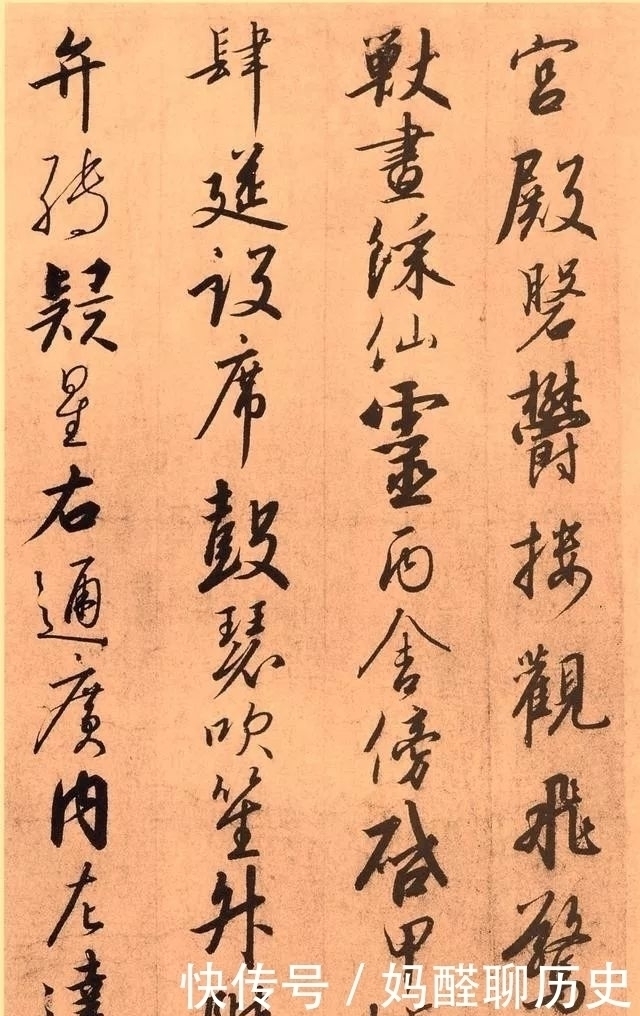 宮殿磐鬱樓觀飛驚
獸畫綵仙靈丙舍傍啓甲
肆筵設席鼓瑟吹笙升
弁轉疑星右通廣內左達
快传号 / 妈醛聊历史